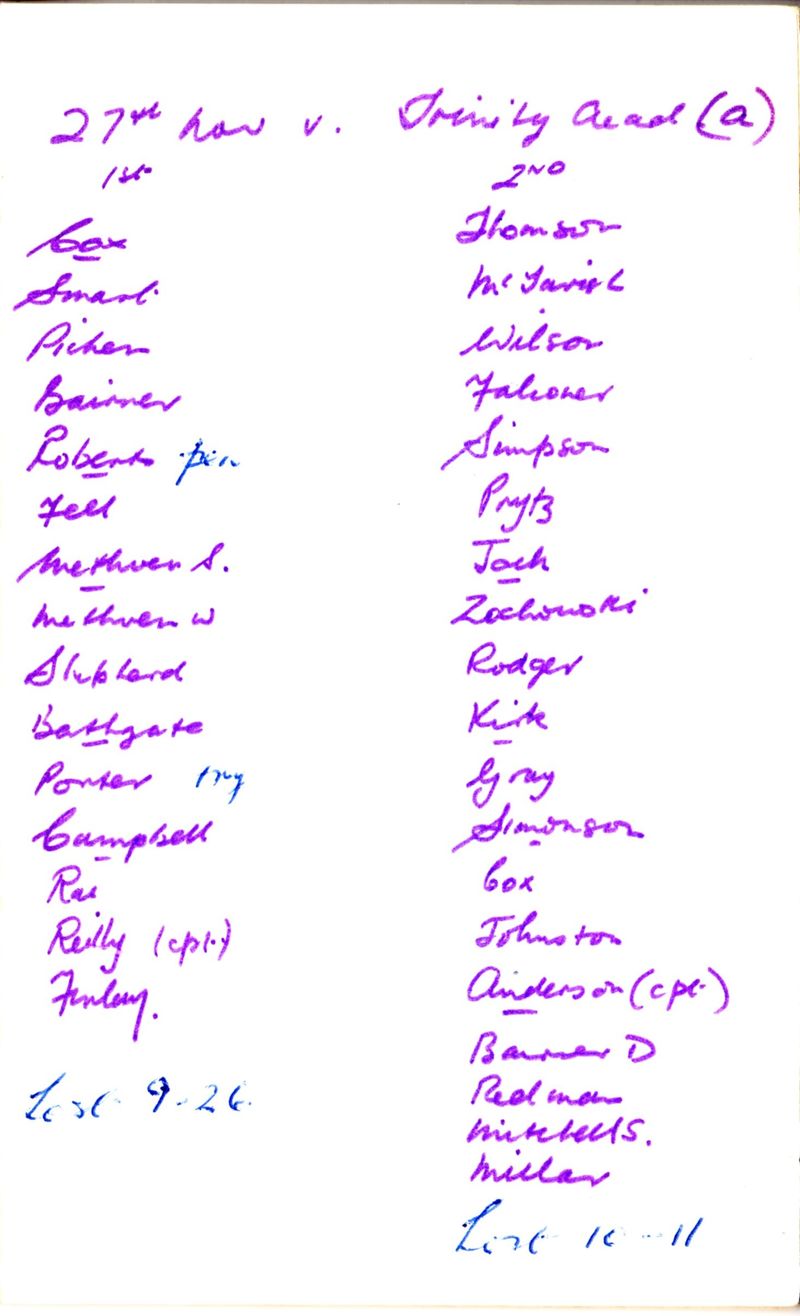 27th Nov v. Trinity Acad (a)
1st
Cox
Smart
Picken
Bairner
Roberts pen
Fell
Methven S.
Methven W
Shepherd
Bathgate
Porter try
Campbell
Rae
Reilly (cpt.)
Finlay.
Lost 9-26
2ND
Thomson
McTavish
Wilson
Falconer
Simpson
Prytz
Jack
Zochowski
Rodger
Kirk
Gray
Simonson
Cox
Johnston
Anderson (cpt.)
Bairner D
Redman
Mitchell S.
Millar
Lost 10-11